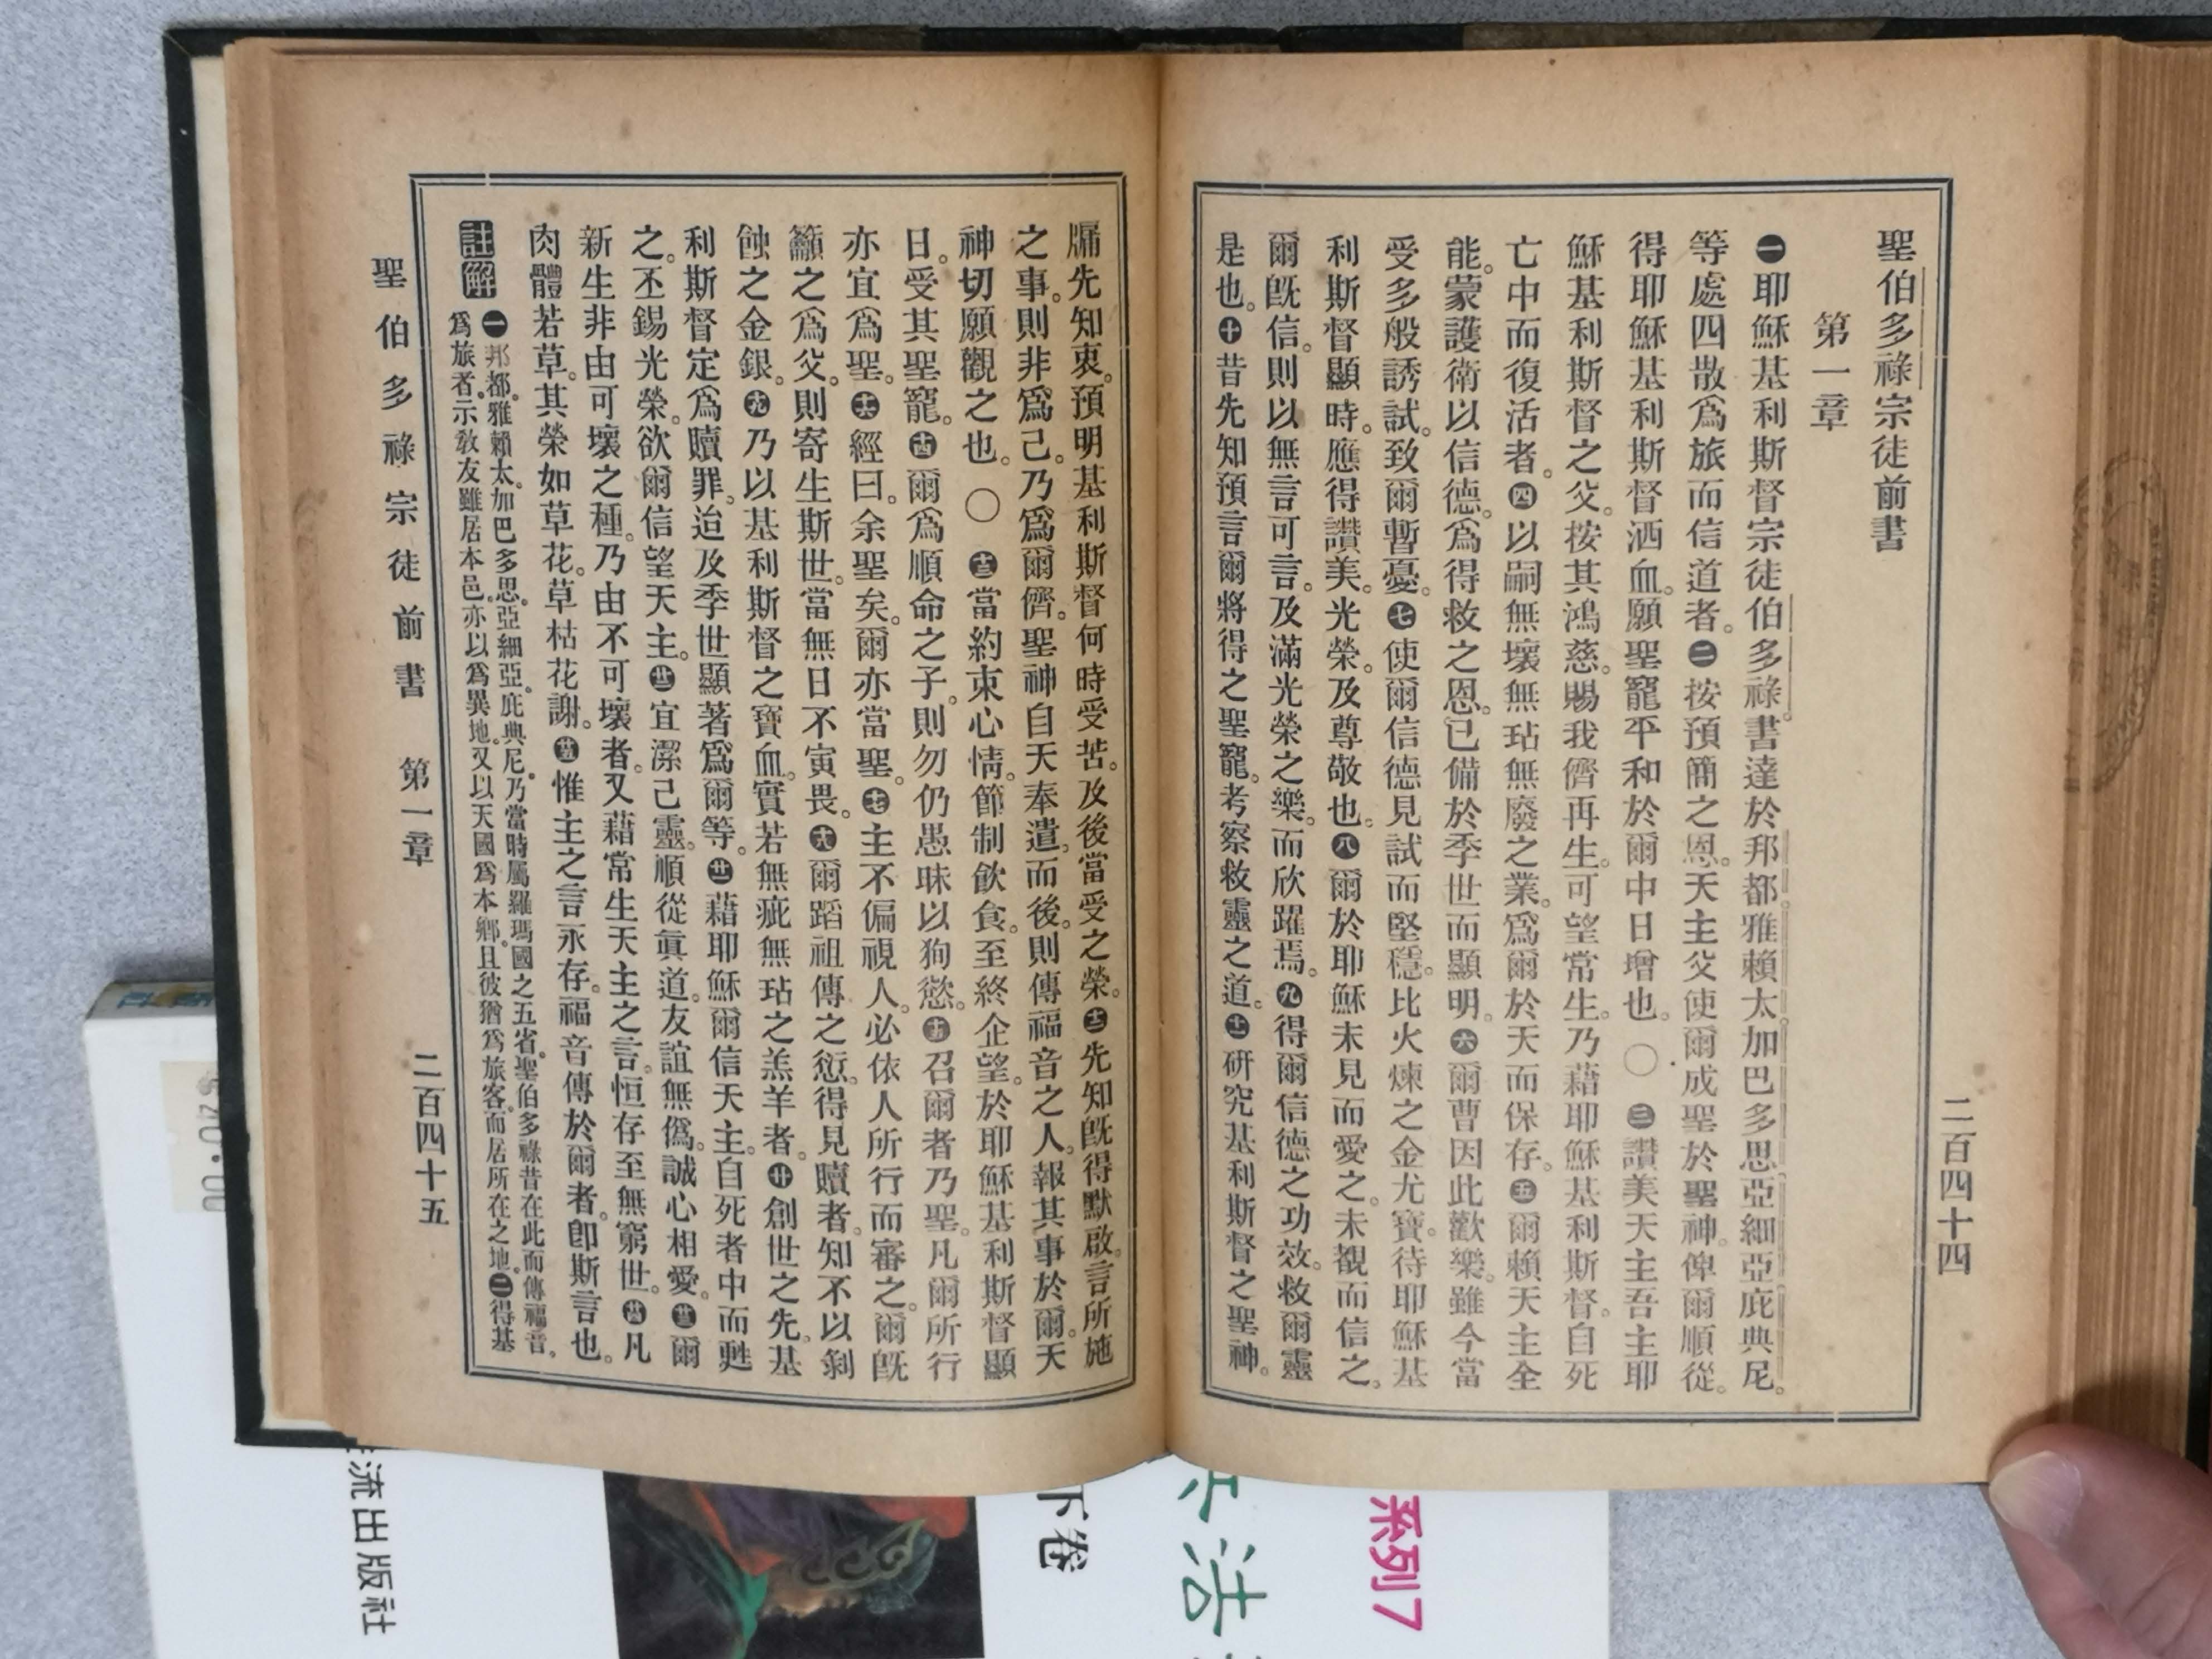 聖伯多祿宗徒前書
第一章
㊀耶穌基利斯督宗徒伯多祿。書達於邦都。雅賴太。加巴多思。亞細亞。庇典尼。
等處四散爲旅而信道者。㊁按預簡之恩。天主父使爾成聖於聖神。俾爾順從。
得耶穌基利斯督洒血。願聖寵平和於爾中日增也。〇㊂讚美天主吾主耶
穌基利斯督之父。按其鴻慈。賜我儕再生。可望常生。乃藉耶穌基利斯督。自死
亡中而復活者。㊃以嗣無壞無玷無廢之業。爲爾於天而保存。㊄爾賴天主全
能。蒙護衛以信德。爲得救之恩。已備於季世而顯明。㊅爾曹因此歡樂。雖今當
受多般誘試。致爾暫憂。㊆使爾信德見試而堅穩。比火煉之金尤寶。待耶穌基
利斯督顯時。應得讚美。光榮。及尊敬也。㊇爾於耶穌未見而愛之。未覩而信之。
爾既信。則以無言可言。及滿光榮之樂。而欣躍焉。㊈得爾信德之功效。救爾靈
是也。㊉昔先知預言爾將得之聖寵。考察救靈之道。十一研究基利斯督之聖神。
牖先知衷。預明基利斯督何時受苦。及後當受之榮。十二先知既得默啟。言所施
之事。則非爲己。乃爲爾儕。聖神自天奉遣。而後。則傳福音之人。報其事於爾。天
神切願觀之也。〇十三當約束心情。節制飲食。至終企望。於耶穌基利斯督顯
日。受其聖寵。十四爾爲順命之子。則勿仍愚昧以狥慾。十五召爾者乃聖。凡爾所行
亦宜爲聖。十六經曰。余聖矣。爾亦當聖。十七主不偏視人。必依人所行而審之。爾既
籲之爲父。則寄生斯世。當無日不寅畏。十八爾蹈祖傳之愆。得見贖者。知不以剝
蝕之金銀。十九乃以基利斯督之寶血。實若無疵無玷之羔羊者。廿創世之先。基
利斯督定爲贖罪。迨及季世顯著爲爾等。廿一藉耶穌爾信天主。自死者中而甦
之。丕錫光榮。欲爾信望天主。廿二宜潔己靈。順從眞道。友誼無僞。誠心相愛。廿三爾
新生非由可壞之種。乃由不可壞者。又藉常生天主之言。恒存至無窮世。廿四凡
肉體若草。其榮如草花。草枯花謝。廿五惟主之言永存。福音傳於爾者。卽斯言也。
註解 ㊀邦都。雅賴太。加巴多思。亞細亞。庇典尼。乃當時屬羅瑪國之五省。聖伯多祿昔在此而傳福音。
爲旅者。示敎友雖居本邑。亦以爲異地。又以天國爲本鄕。且彼猶爲旅客。而居所在之地。㊁得基
聖伯多祿宗徒前書 第一章
二百四十五
二百四十四
流出版社
下卷
活
系列7
$20.00